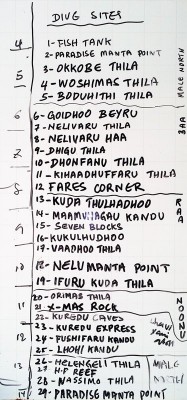 DIVE SITES
4
1-FISH TANK
2-PARADISE MANTA POINT
3-OKKOBE THILA
5
4-WOSHIMAS THILA
5-BODUHITHI THILA
MALE NORTH
6
6-GOIDHOO BEYRU
7-NELIVARU THILA
7
8-NELIVARU HAA
9-DHIGU THILA
10-DHONFANU THILA
11-KIHAADHUFFARU THILA
8
12 FARES CORNER
BAA
13-KUDA THULHADHOO
9
14-MAAMUNAGAU KANDU
15-SEVEN BLOCKS
16-KUKULHUDHOO
17-VAADHOO THILA
10
18-NELU MANTA POINT
19-IFURU KUDA THILA
RAA
11
20-ORIMAS THILA
21-X-MAS ROCK
22-KUREDU CAVES
23-KUREDU EXPRESS
12
24-FUSHIFARU KANDU
25-LHOHI KANDU
NOONU
13
26-HELENGELI THILA
27-H.P REEF
28-NASSIMO THILA
14
29-PARADISE MANTA POINT
MALE
NORTH